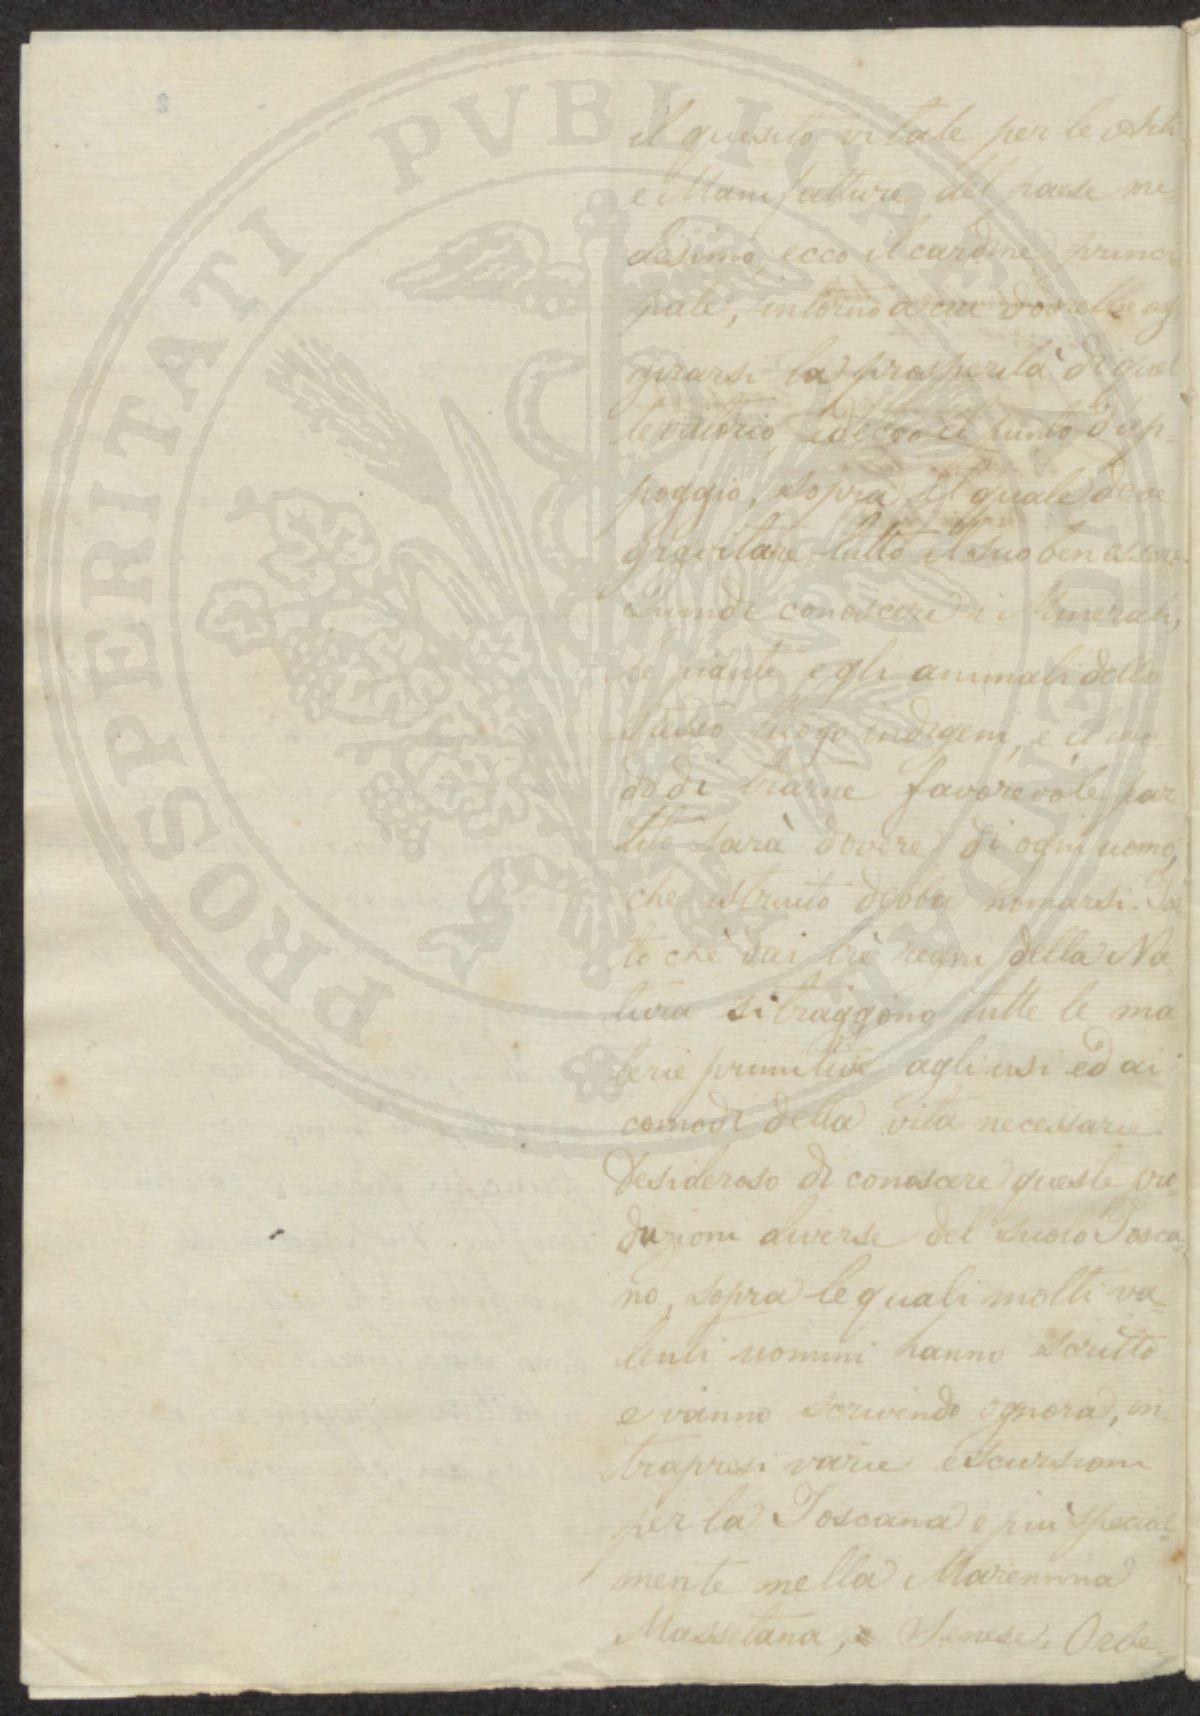 il quesito vitale per le Arti
e Manifatture del paese me-
desimo, ecco il cardine princi-
pale, intorno a cui dovrebbe ag-
girarsi la prosperità di quel
territorio, ed ecco il punto d'ap-
poggio, sopra il quale deve
gravitare tutto il suo ben essere.
Quindi conoscere i Minerali,
le piante e gli animali dello
stesso luogo indigeni, e il mo-
do di trarne favorevole par
tito sarà dovere di ogni uomo,
che istruito debba nomarsi. Tos
to chè dai trè regni della Na-
tura si traggono tutte le ma
terie primitive agli usi ed ai
comodi della vita necessarie.
Desideroso di conoscere queste pro-
duzioni diverse del suolo Tosca-
no, sopra le quali molti va-
lenti uomini hanno scritto
e vanno scrivendo ognora, in-
trapresi varie escursioni
per la Toscana e più special-
mente nella Maremma
Massetana, e Senese, Orbe-
PROSPERITATI PVBLICAE AVGENDAE
2